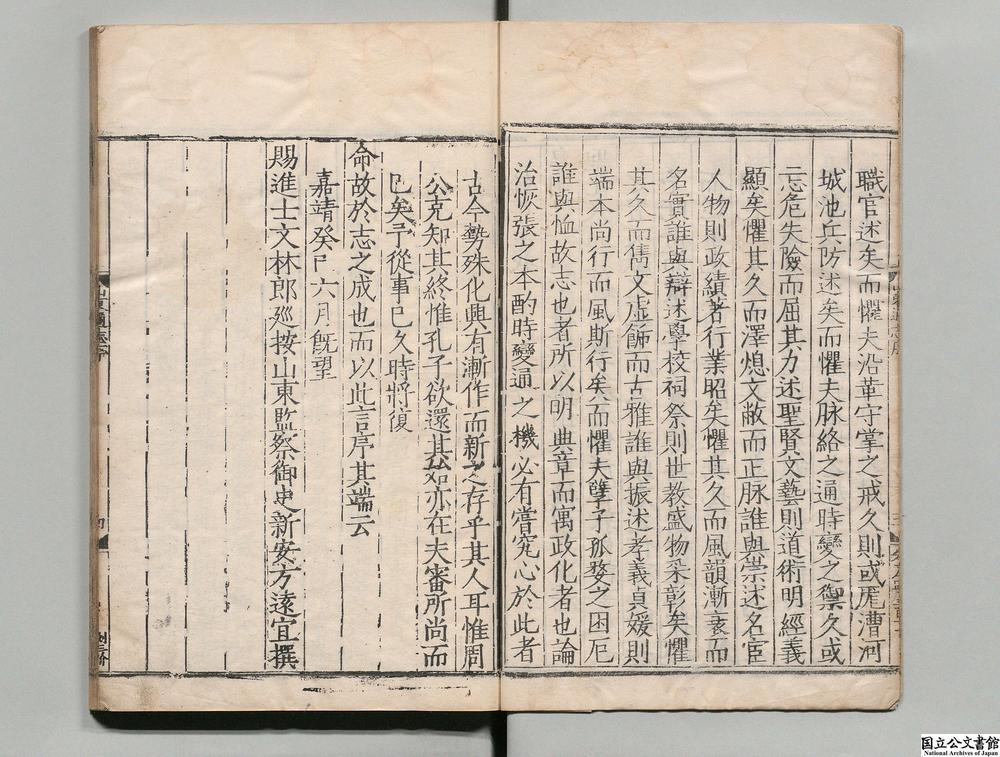 職官述矣而懼夫沿革守掌之戒久則或厖漕河
城池兵防述矣而懼夫脉絡之通時變之禦久或
忘危失險而屈其力述聖賢文藝則道術明經義
顯矣懼其久而澤熄文敝而正脉誰與崇述名宦
人物則政績著行業昭矣懼其久而風韻漸衰而
名實誰與辯述學校祠祭則世教盛物采彰矣懼
其久而雋文虛飾而古雅誰與振述孝義貞媛則
端本尚行而風斯行矣而懼夫孽子孤嫠之困厄
誰與恤故志也者所以明典章而寓政化者也論
治恢張之本酌時變通之機必有嘗究心於此者
古今勢殊化興有漸作而新之存乎其人耳惟周
公克知其終惟孔子欲還其始亦在夫審所尚而
已矣予從事已久時將復
命故於志之成也而以此言序其端云
嘉靖癸巳六月既望
賜進士文林郎廵按山東監察御史新安方遠宜撰
国立公文書館
National Archives of Japan